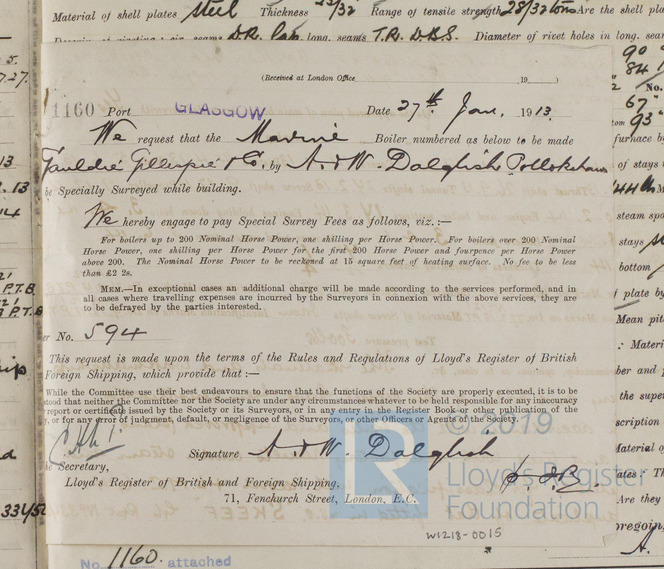 Material of shell plates Steel Thickness 23/32 Range of tensile strength 28/32 tons Are the shell pla
long. seams T.R. D.B.S. Diameter of rivet holes in long. sea
(Received at London Office 19 )
1160 Port GLASGOW Date 27th Jan. 1913.
We request that the Marine Boiler numbered as below to be made
Gauldie Gillespie & Co. by A. & W. Dalglish Pollokshaws
be Specially Surveyed while building.
We hereby engage to pay Special Survey Fees as follows, viz.:—
For boilers up to 200 Nominal Horse Power, one shilling per Horse Power. For boilers over 200 Nominal
Horse Power, one shilling per Horse Power for the first 200 Horse Power and fourpence per Horse Power
above 200. The Nominal Horse Power to be reckoned at 15 square feet of heating surface. No fee to be less
than £2 2s.
MEM.—In exceptional cases an additional charge will be made according to the services performed, and in
all cases where travelling expenses are incurred by the Surveyors in connexion with the above services, they are
to be defrayed by the parties interested.
er No. 594
This request is made upon the terms of the Rules and Regulations of Lloyd's Register of British
Foreign Shipping, which provide that :—
While the Committee use their best endeavours to ensure that the functions of the Society are properly executed, it is to be
stood that neither the Committee nor the Society are under any circumstances whatever to be held responsible for any inaccuracy
report or certificate issued by the Society or its Surveyors, or in any entry in the Register Book or other publication of the
, or for any error of judgment, default, or negligence of the Surveyors, or other Officers or Agents of the Society.
Signature, A. & W. Dalglish
he Secretary,
Lloyd's Register of British and Foreign Shipping,
71, Fenchurch Street, London, E.C.
W1218-0015
No. 1160. attached
© 2019
Lloyd's Register
Foundation
90
84
No.
67"
93"
furnace b
of stays
steam spa
stays
bottom
plate by
Mean pit
: Materi
ber and
the super
scription
Material of
ates :
Are they
regoin
A.